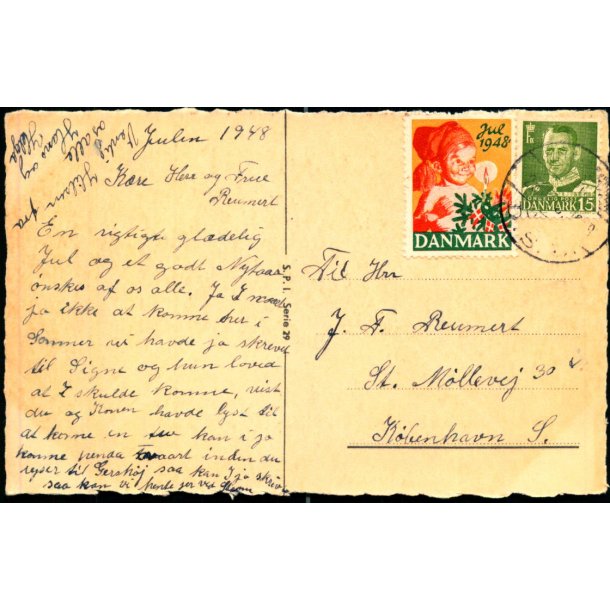 Julen 1948
Kære Herr og Frue
Reumert
En rigtigte glædelig
Jul og et godt Nytaaa
ønskes af os alle. Ja I
jo ikke at komme her i
Sommer vi havde jo skrevet
til Signe og hun loved
at I skulde komme, vist
du og Konen havde lyst til
at kome en tuv kan i jo
komme penda Tvaart inden du
rejser til Gershøj saa kan I jo skrive
saa kan vi hente jer ved
Hilsen fra
Hans og
Helga
og alle
S.P.I. Serie 29
Jul
1948
DANMARK
DANMARK 15
Til Hrr
J. F. Reumert
St. Möllevej 30
København S.